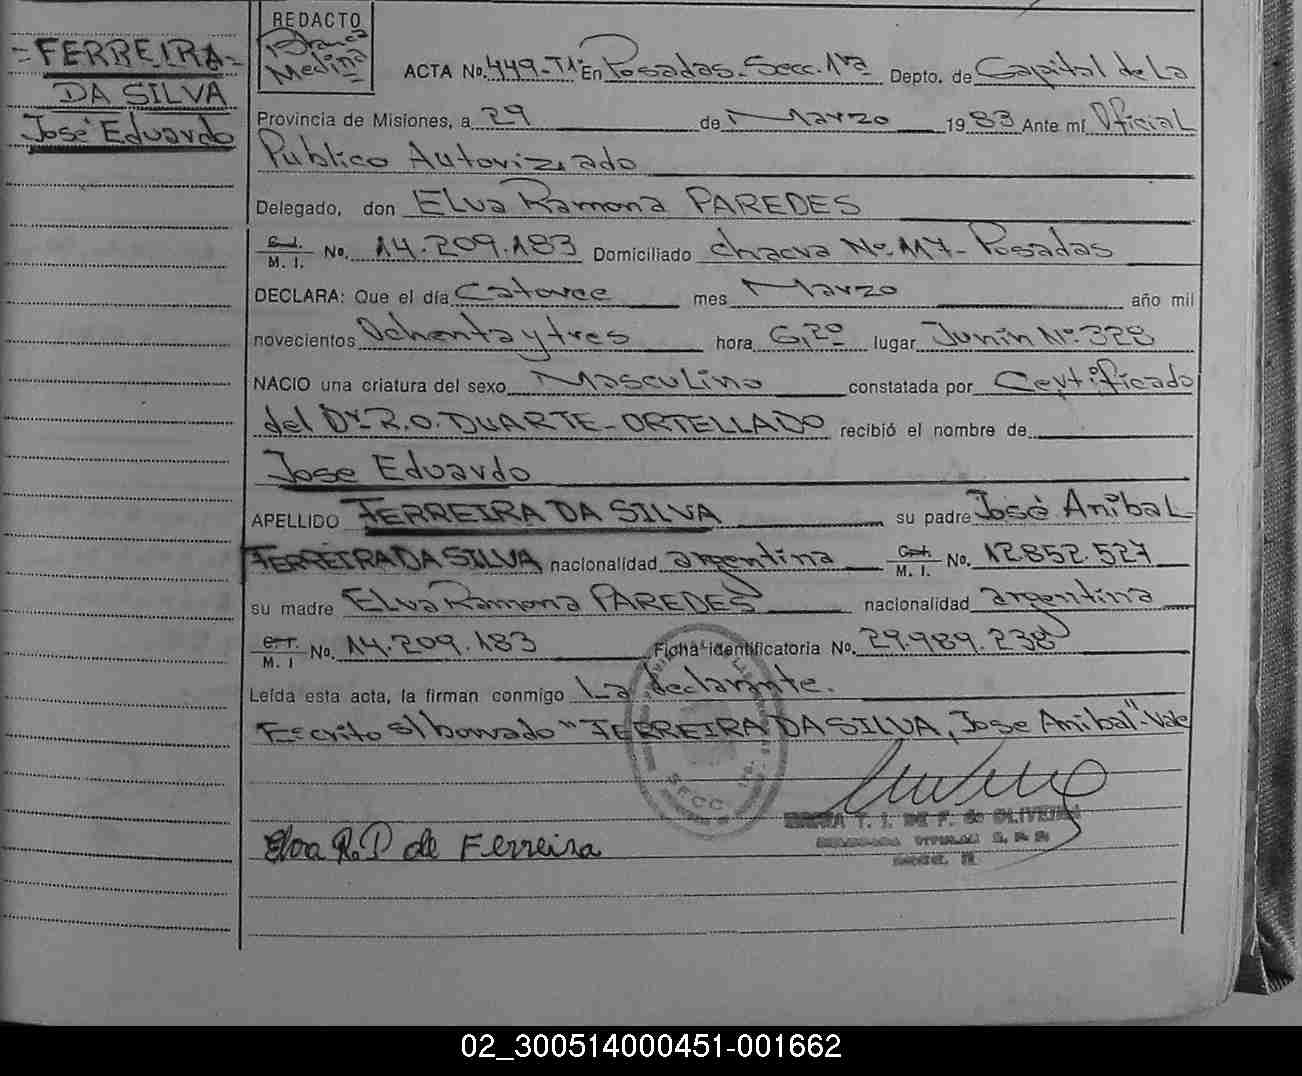 =FERREIRA=
DA SILVA
José Eduardo
REDACTO
Blanca
Medina
ACTA No. 449-T1º En Posadas-Secc. 1ra Depto. de Capital de La
Provincia de Misiones, a 29 de Marzo 1983 Ante mí Oficial
Publico Autorizado
Delegado, don Elva Ramona PAREDES
M. I. No. 14.209.183 Domiciliado chacra Nº.117- Posadas
DECLARA: Que el día Catorce mes Marzo año mil
novecientos Ochenta y tres hora 6,20 lugar Junín Nº.328
NACIO una criatura del sexo Masculino constatada por Certificado
del Dr. R.O. DUARTE-ORTELLADO recibió el nombre de
Jose Eduardo
APELLIDO FERREIRA DA SILVA su padre José Anibal
FERREIRA DA SILVA nacionalidad argentina M. I. No. 12.852.527
su madre Elva Ramona PAREDES nacionalidad argentina
M. I No. 14.209.183 Ficha identificatoria No. 29.989.238
Leída esta acta, la firman conmigo La declarante.
Escrito s/borrado "FERREIRA DA SILVA, Jose Anibal"-Vale
SECC. 1ra.
T. I. DE F. de OLIVEIRA
Elva R. P de Ferreira
02_300514000451-001662